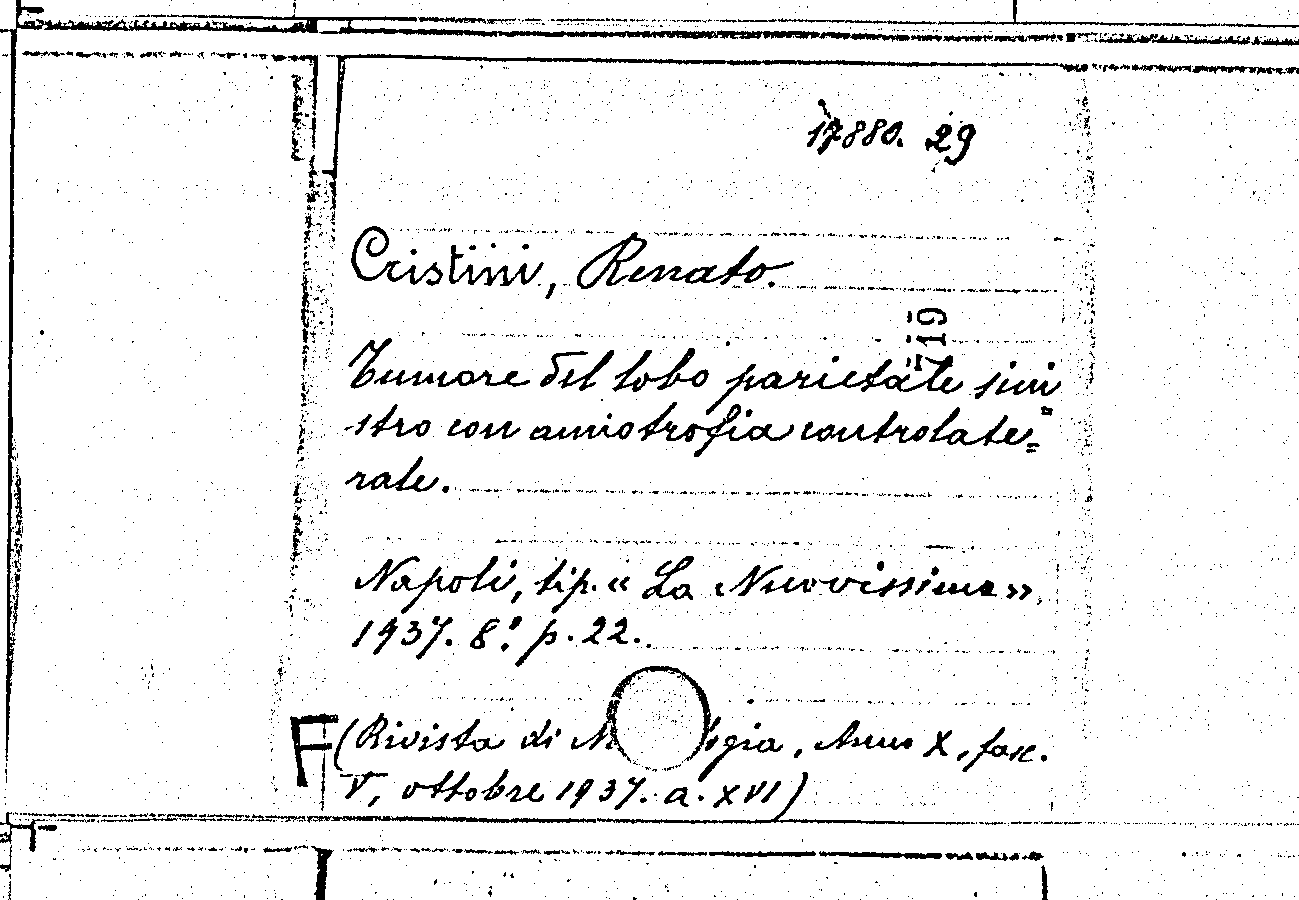 17880. 29
Cristini, Renato.
719
Tumore del lobo parietale sini=
stro con amiotrofia controlate=
rale.
Napoli, tip. « La Nuovissima »
1937. 8.° p. 22.
F (Rivista di N gia, Anno X, fasc.
V, ottobre 1937. a. XVI)